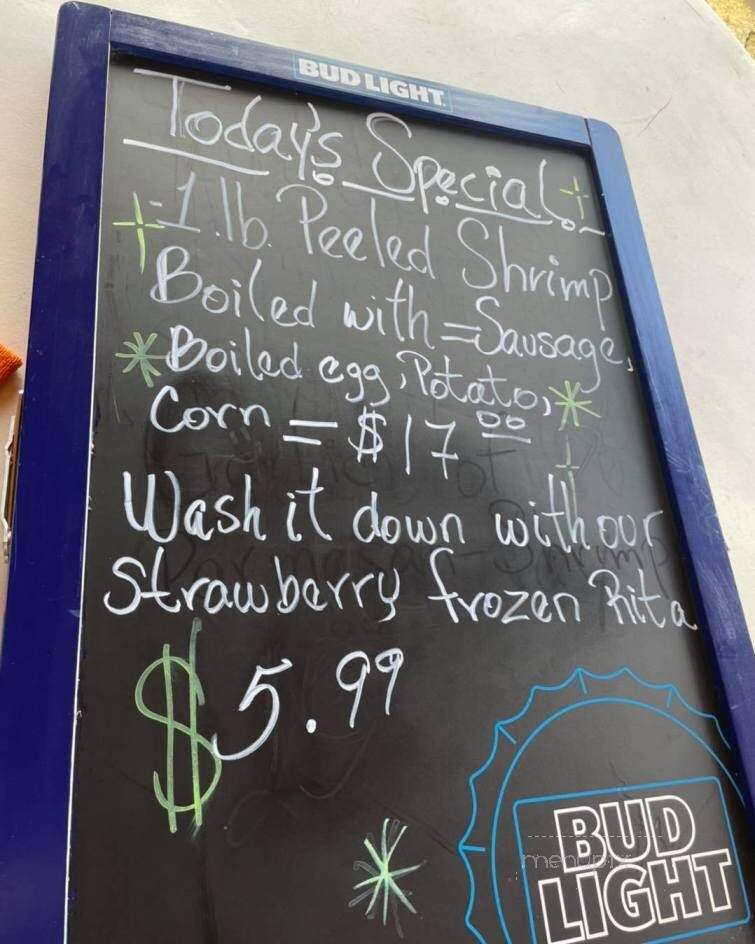 BUD LIGHT
Today's Special.
-1.lb. Peeled Shrimp
Boiled with = Sausage,
Boiled egg, Potato,
Corn = $17 00
Wash it down with our
Strawberry frozen Rita
$5.99
BUD
LIGHT